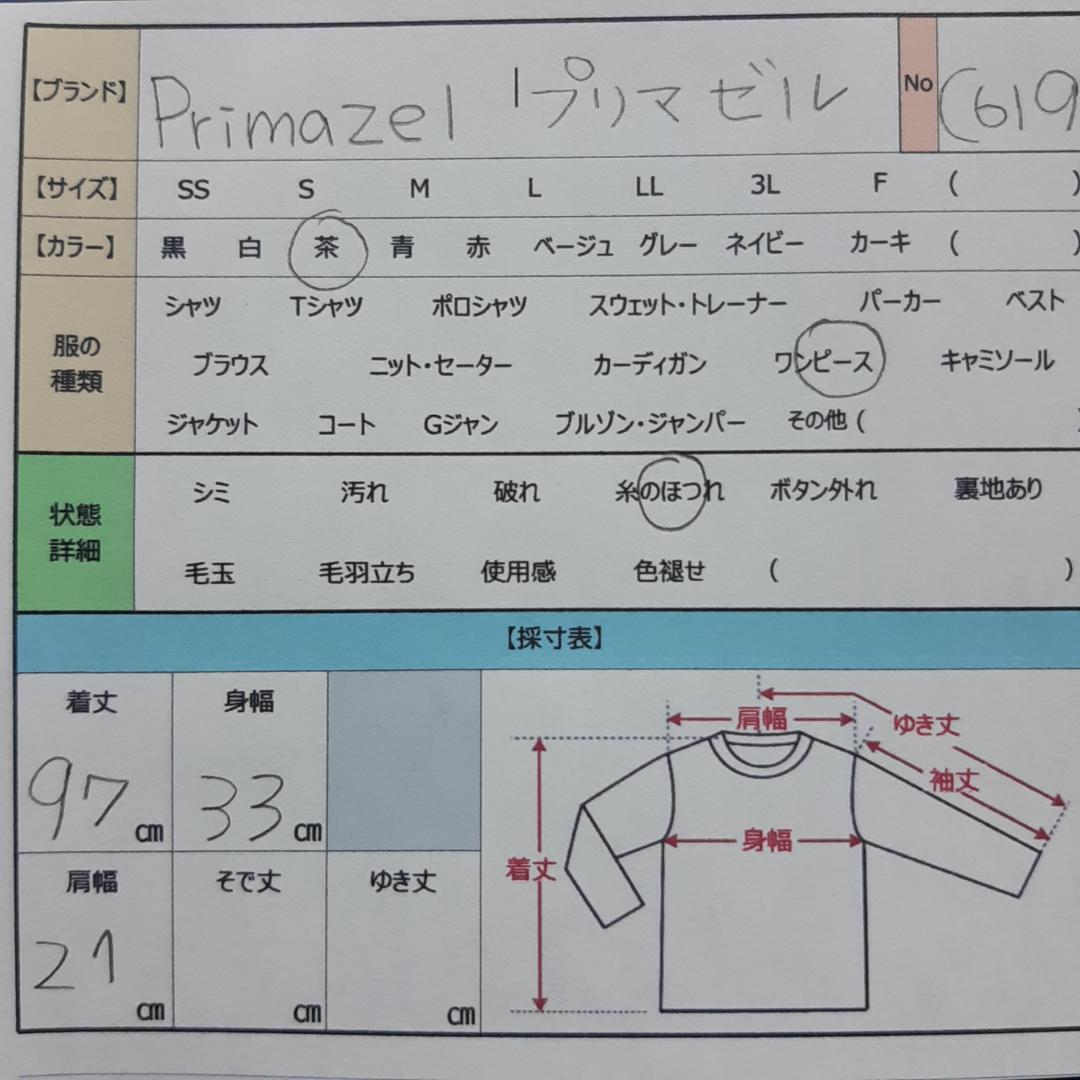 【ブランド】 Primazel | プリマゼル No (619
【サイズ】 SS S M L LL 3L F ( )
【カラー】 黒 白 茶 青 赤 ベージュ グレー ネイビー カーキ ( )
服の種類
シャツ Tシャツ ポロシャツ スウェット・トレーナー パーカー ベスト
ブラウス ニット・セーター カーディガン ワンピース キャミソール
ジャケット コート Gジャン ブルゾン・ジャンパー その他 (
状態詳細
シミ 汚れ 破れ 糸のほつれ ボタン外れ 裏地あり
毛玉 毛羽立ち 使用感 色褪せ ( )
【採寸表】
着丈 身幅
97 cm 33 cm
肩幅 そで丈 ゆき丈
21 cm cm cm
肩幅
ゆき丈
袖丈
身幅
着丈